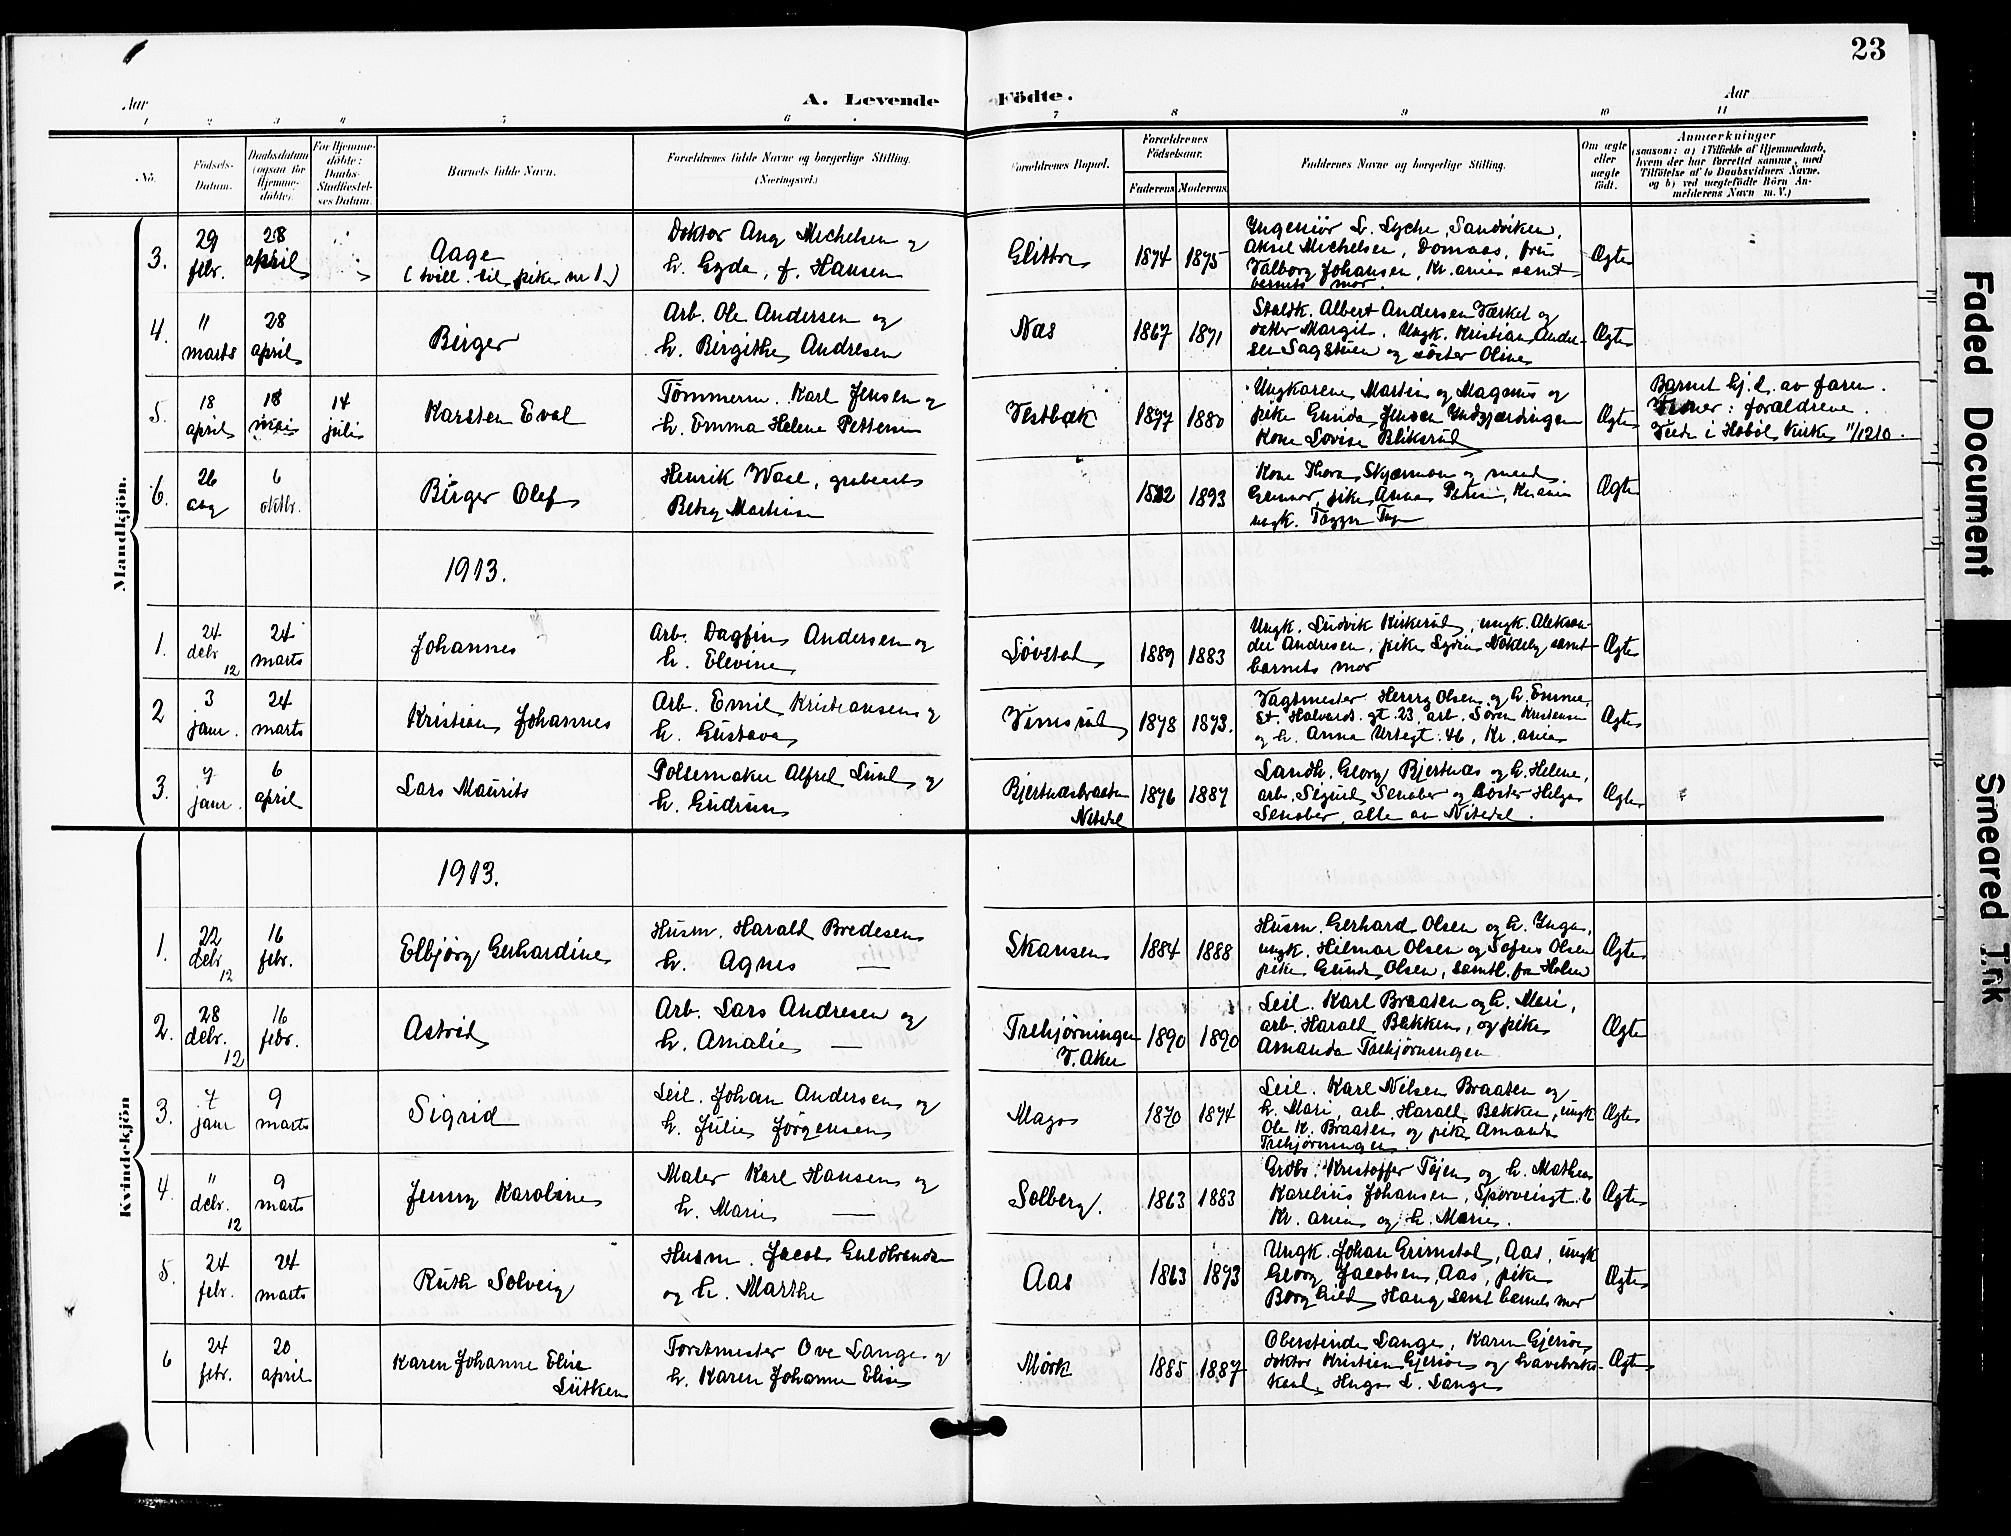 23
Aar
A. Levende Födte.
Aar
1 2 3 4 5 6 7 8 9 10 11
No.
Födsels-Datum.
Daabsdatum (ogsaa for Hjemme-döbte).
For Hjemme-döbte: Daabs-Stadfæstel-ses Datum.
Barnets fulde Navn.
Forældrenes fulde Navne og borgerlige Stilling. (Næringsvei.)
Forældrenes Bopæl.
Forældrenes Födselsaar.
Faderens Moderens
Faddernes Navne og borgerlige Stilling.
Om ægte eller uægte födt.
Anmærkninger
(saasom: a) i Tilfælde af Hjemmedaab, hvem der har forrettet samme, med Tilföielse af to Daabsvidners Navne, og b) ved uægtefödte Börn An-melderens Navn m. V.)
Mandkjön.
3.
29 febr.
28 april
Aage
(tvill. til pike nr 1.)
Doktor Aug Michelsen og
h. Gyda, f. Hansen
Glittre
1874 1875
Ingeniör L. Lyche, Sandviken,
Aksel Michelsen, Domaas, fru
Valborg Johansen, Kr.ania samt
barnets mor.
Ægte
4.
11 marts
28 april
Birger
Arb. Ole Andersen og
h. Birgithe Andresen
Næs
1867 1871
Staldk. Albert Andersen Værket og
datter Margit, Ungk. Kristian Andre-
sen Sagstuen og söster Oline
Ægte
5.
18 april
18 mai
14 juli
Karsten Eval
Tömmerm. Karl Jensen og
h. Emma Helene Pettersen
Vestbæk
1877 1880
Ungkarene Martin og Magnus og
pike Gunda Jensen
Kone Lovise Bliksrud
Ægte
Barnet hj.d. av faren.
forældrene.
Viede i Hobøl Kirke 11/12 10.
6.
26 aug
6 oktbr.
Birger Olaf
Henrik
Betsy
1893
Kone Thora
Gunnar, pike Anna Kr.ania
ungk.
Ægte
1913.
1.
24 debr 12
24 marts
Johannes
Arb. Dagfin Andersen og
h. Elevine
Løvstad
1889 1883
Ungk. Ludvik Kirkerud, ungk. Aleksan-
der Andresen, pike Lydia Nökleby samt
barnets mor
Ægte
2
3 janr.
24 marts
Kristian Johannes
Arb. Emil Kristiansen og
h. Gustava
Vimsrud
1878 1873.
Vagtmester Henry Olsen og h. Emma,
St. Halvards. gt. 23, arb. Sören Kristensen
og h. Anna Urtegt. 46, Kr.ania
Ægte
3.
7 janr.
6 april
Lars Maurits
Pölsemaker Alfred Lund og
h. Gudrun
Bjertnæsbraaten
Nitedal
1876 1887
Landh. Georg Bjertnæs og h. Helene,
arb. Sigurd Senober og söster Helga
Senober, alle av Nitedal.
Ægte
Kvindekjön
1913.
1.
22 debr 12
16 febr.
Elbjörg Gerhardine
Husm. Harald Bredesen
h. Agnes —
Skansen
1884 1888
Husm. Gerhard Olsen og h. Inga,
ungk. Hilmar Olsen og Sofus Olsen
pike Gunda Olsen, samtl. fra Holen
Ægte
2.
28 debr. 12
16 febr.
Astrid
Arb. Lars Andresen og
h. Amalie —
Trehjørningen
V. Aker
1890 1890
Leil. Karl Braaten og h. Mari,
arb. Harald Bakken, og pike
Amanda Trehjørningen
Ægte
3.
7 janr
9 marts
Sigrid
Leil. Johan Andersen og
h. Julie Jørgensen
Mago
1870 1874
Leil. Karl Nilsen Braaten og
h. Mari, arb. Harald Bakken, ungk
Ole K. Braaten og pike Amanda
Trehjørningen.
Ægte
4.
11 debr. 12
9 marts
Jenny Karoline
Maler Karl Hansen og
h. Marie —
Solberg.
1863 1883
Grdbr. Kristoffer Töien og h. Mathea
Karelius Johansen, Sporveisgt. 6
Kr.ania og h. Marie.
Ægte
5.
24 febr.
24 marts
Ruth Solveig
Husm. Jacob Guldbrandsen
og h. Marthe
Aas
1863 1873
Ungk. Johan Grimstad, Aas, ungk
Georg Jacobsen, Aas, pike
Borghild Haug samt barnets mor
Ægte
6
24 febr.
20 april
Karen Johanne Elise
Lütken
Forstmester Ove Lange og
h. Karen Johanne Elise
Mörk
1885 1887
Oberstinde Lange, Karen Gjersöe
doktor Kristian Gjersöe og
Hugo L. Lange
Ægte
Faded Document
Smeared Ink